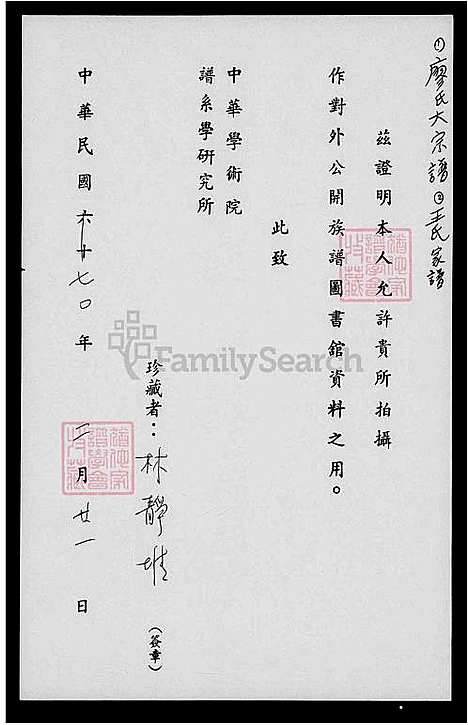 ①廖氏大宗譜②王氏家譜
茲證明本人允許貴所拍攝
作對外公開族譜圖書館資料之用。
此致
中華學術院
譜系學研究所
珍藏者：林靜堆（簽章）
中華民國六十七〇年二月廿一日
FamilySearch